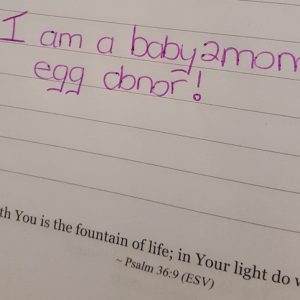 I am a baby2mom
egg donor!
th You is the fountain of life; in Your light do
~ Psalm 36:9 (ESV)